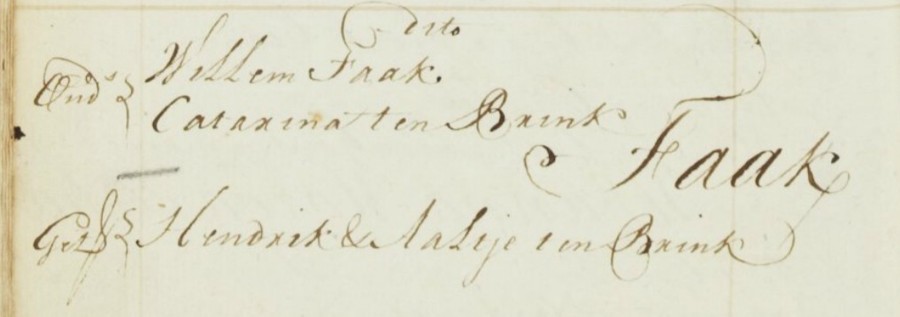 dito
Oud.s Willem Faak.
Catarina ten Brink
Faak
Get. Hendrik & Aaltje ten Brink